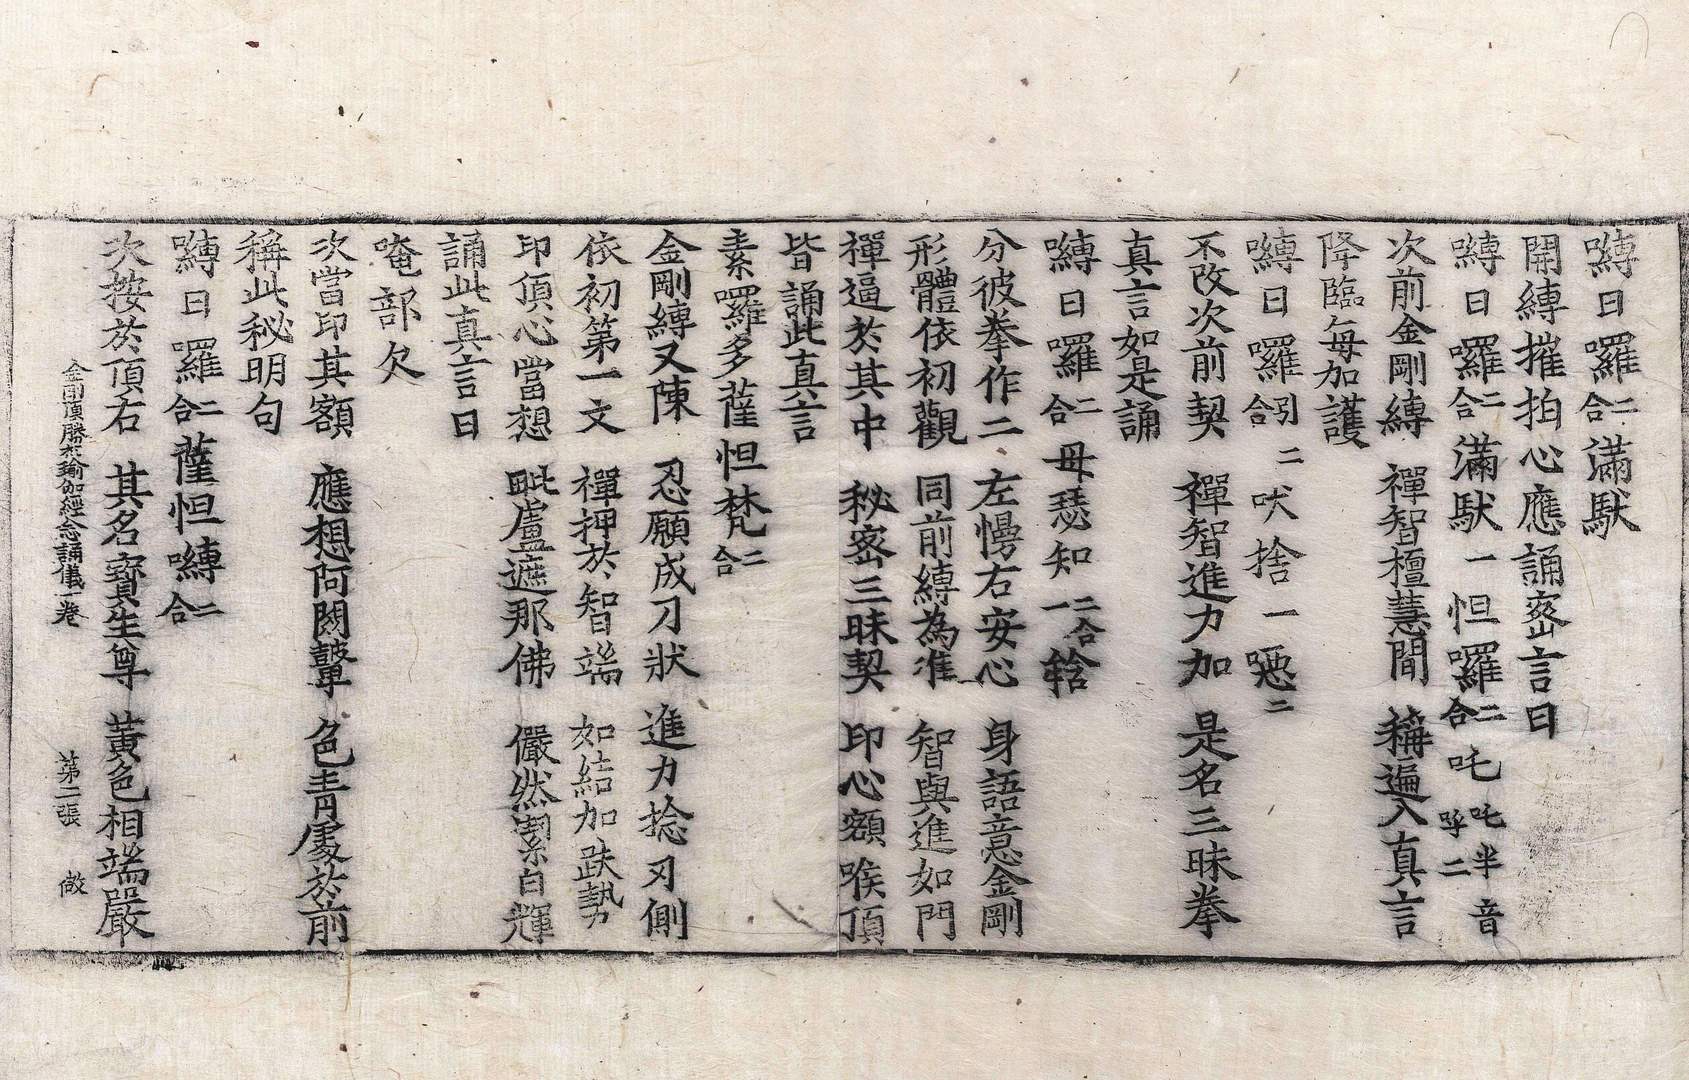 嚩日囉二合滿馱
開縛摧拍心應誦密言曰
嚩日囉二合滿馱一怛囉二合吒吒半音呼二
次前金剛縛　禪智檀慧間　稱遍入真言
降臨每加護
嚩日囉引二合吠捨一噁二
不改次前契　禪智進力加　是名三昧拳
真言如是誦
嚩日囉二合母瑟知二合一𤚥
分彼拳作二　左慢右安心　身語意金剛
形體依初觀　同前縛為准　智與進如門
禪逼於其中　秘密三昧契　印心額喉頂
皆誦此真言
素囉多薩怛梵二合
金剛縛又陳　忍願成刀狀　進力捻刃側
依初第一文　禪押於智端　如結加趺勢
印頂心當想　毗盧遮那佛　儼然潔白輝
誦此真言曰
唵部欠
次當印其額　應想阿閦鞞　色青處於前
稱此秘明句
嚩日囉二合薩怛嚩二合
次按於頂右　其名寶生尊　黃色相端嚴
金剛頂勝初瑜伽經念誦儀一卷　第二張　做